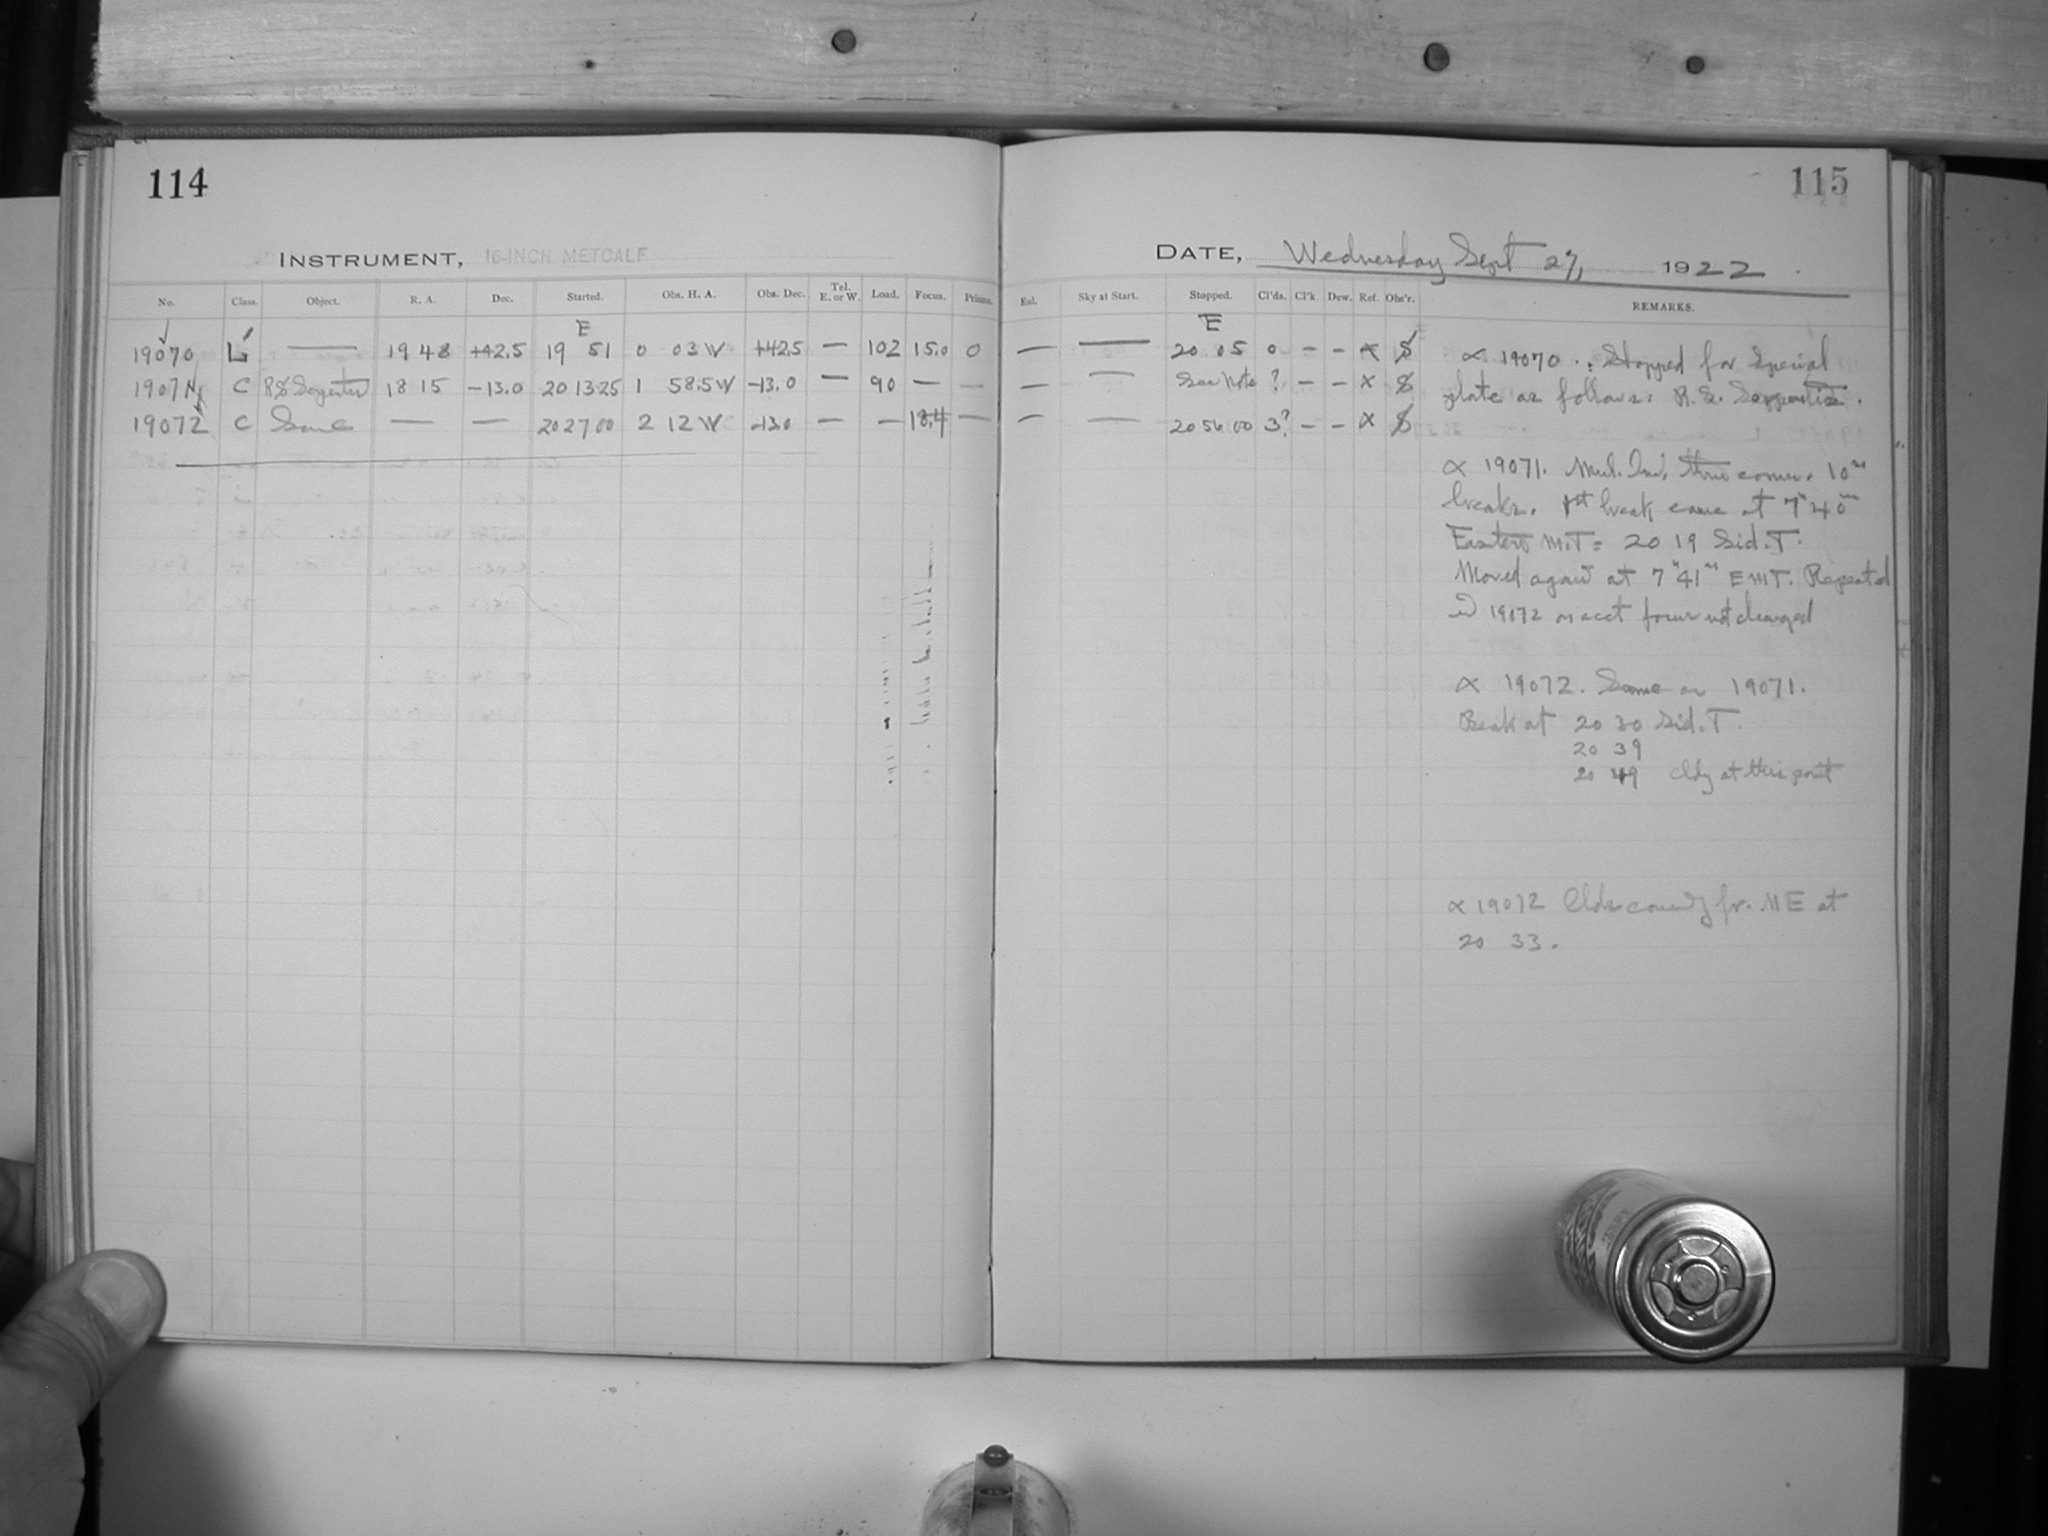 114
INSTRUMENT, 16-INCH METCALF
No. Class. Object. R. A. Dec. Started. Obs. H. A. Obs. Dec. Tel. E. or W. Load. Focus. Prisms.
E
19070 L — 19 48 +42.5 19 51 0 03 W +42.5 — 102 15.0 0
19071 C RS Serpentis 18 15 -13.0 20 13 25 1 58.5 W -13.0 — 90 — —
19072 C Same — — 20 27 00 2 12 W -13.0 — — 18.4 —
115
DATE, Wednesday Sept 27, 1922
Exl. Sky at Start. Stopped. Cl'ds. Cl'k. Dew. Ref. Obs'r. REMARKS.
E
— — 20 05 0 – – x S
— — See Note ? – – x S
— — 20 56 00 3? – – x S
∝ 19070. Stopped for Special
plate as follows: R.S. Serpentis.
∝ 19071. Mul. Im. 10m
breaks. 1st break came at 7h 40m
Eastern M.T = 20 19 Sid. T.
Moved again at 7h 41m E M T. Repeated
in 19072 on acct focus not changed
∝ 19072. Same as 19071.
Beak at 20 30 Sid. T.
20 39
20 49 cldy at this point
∝ 19072 Clds coming fr. NE at
20 33.